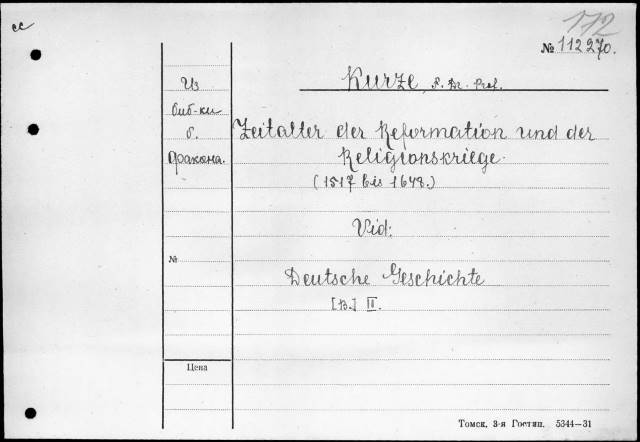 ее
172
№ 112270.
Kurze, F. Dr. Prof.
Из
биб-ки
б.
Фракона.
Zeitalter der Reformation und der
Religionskriege.
(1517 bis 1648.)
Vid:
№
Deutsche Geschichte
[B.] II.
Цена
Томск, 3-я Гостип. 5344—31